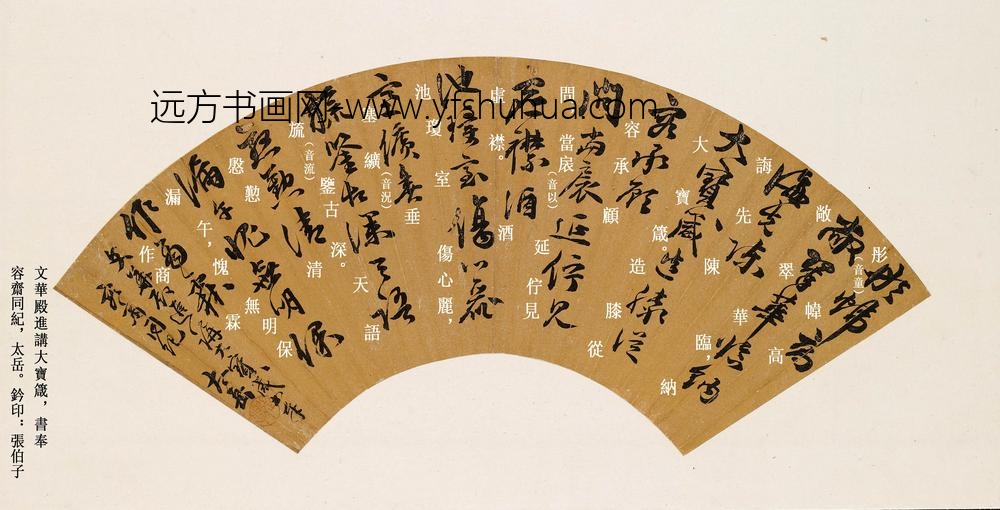 远方书画网 www.yfshuhua.com
彤(音童)幃高
敞翠華臨,納
誨先陳
大寶箴。造膝從
容承顧
問當扆(音以)延佇見
虛襟。酒
池瓊室傷心麗,
塞纊(音況)垂
旒(音流)鑒古深。天語
慇懃清
漏午,愧無明保
作商霖
文華殿進講大寶箴,書奉
容齋同紀,太岳。鈐印:張伯子